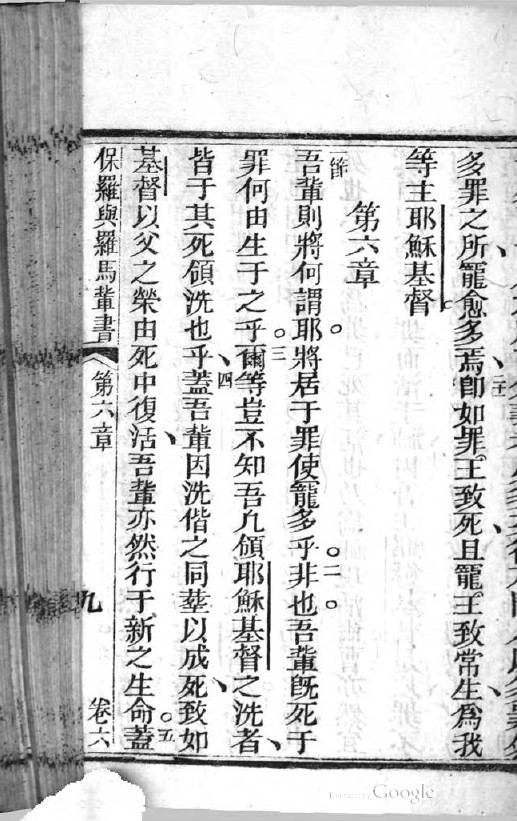 多罪之所寵愈多焉、卽如罪王致死、且寵王致常生、爲我
等主耶穌基督
第六章
一節吾輩則將何謂耶。將居于罪使寵多乎。二非也。吾輩旣死于
罪何由生于之乎。三爾等豈不知吾凡領耶穌基督之洗者、
皆于其死領洗也乎、四蓋吾輩因洗偕之同塟以成死、致如
基督以父之榮由死中復活、吾輩亦然行于新之生命。五蓋
保羅與羅馬輩書 第六章 九 卷六
Google